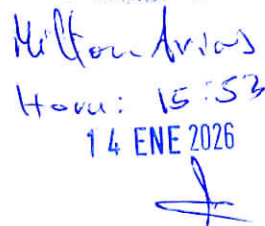 Milton Arias
Hora: 15:53
14 ENE 2026